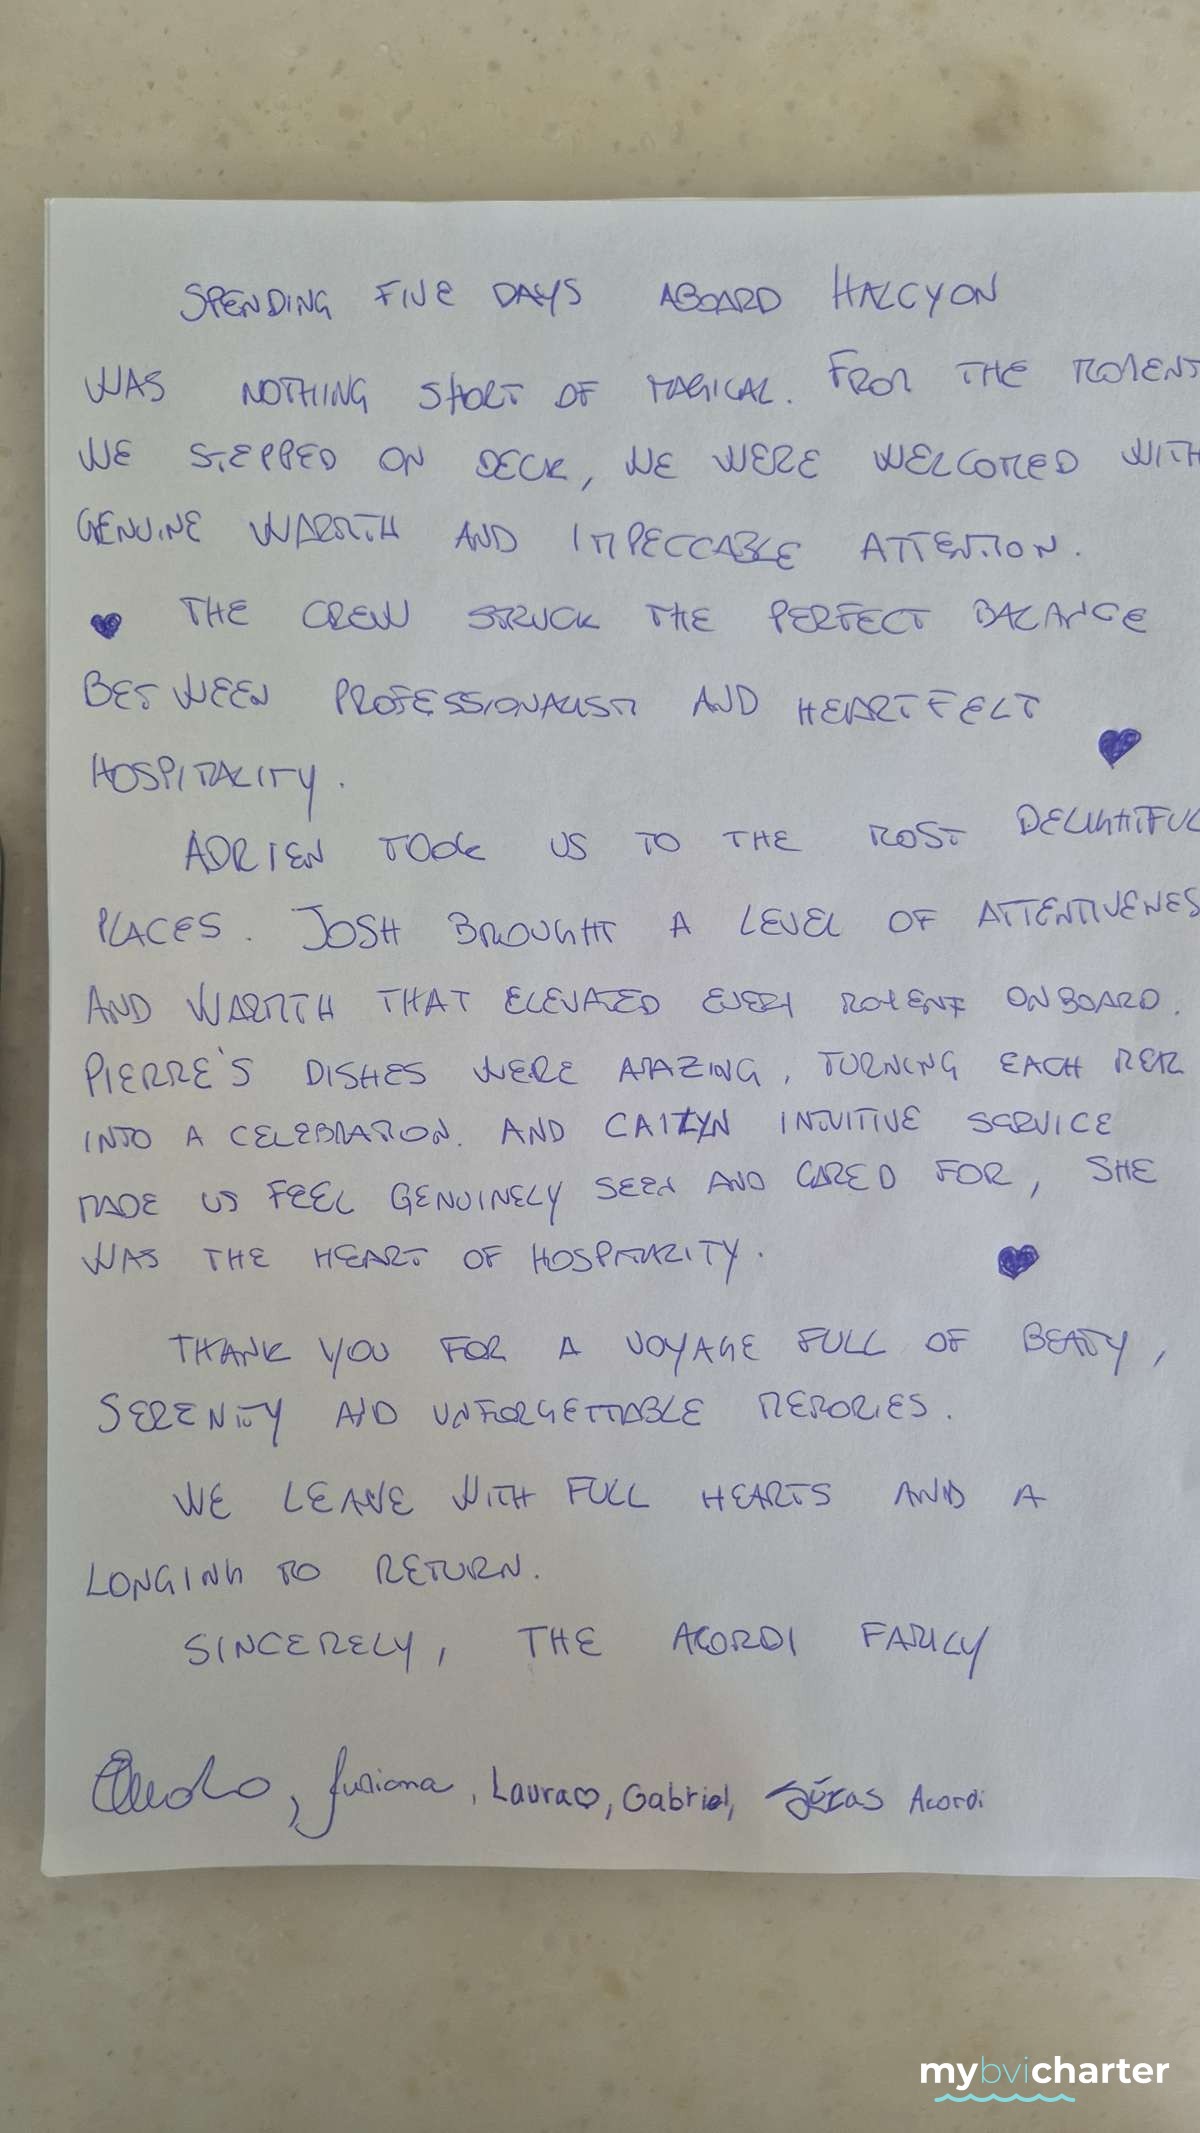 SPENDING FIVE DAYS ABOARD HALCYON
WAS NOTHING SHORT OF MAGICAL. FROM THE MOMENT
WE STEPPED ON DECK, WE WERE WELCOMED WITH
GENUINE WARMTH AND IMPECCABLE ATTENTION.
THE CREW STRUCK THE PERFECT BALANCE
BETWEEN PROFESSIONALISM AND HEARTFELT
HOSPITALITY.
ADRIEN TOOK US TO THE MOST DELIGHTFUL
PLACES. JOSH BROUGHT A LEVEL OF ATTENTIVENES
AND WARMTH THAT ELEVATED EVERY MOMENT ONBOARD.
PIERRE'S DISHES WERE AMAZING, TURNING EACH
INTO A CELEBRATION. AND CAITLYN INTUITIVE SERVICE
MADE US FEEL GENUINELY SEEN AND CARED FOR, SHE
WAS THE HEART OF HOSPITALITY.
THANK YOU FOR A VOYAGE FULL OF BEATY,
SERENITY AND UNFORGETTABLE MEMORIES.
WE LEAVE WITH FULL HEARTS AND A
LONGING TO RETURN.
SINCERELY, THE ACORDI FAMILY
Juliana, Laura♡, Gabriel, Acordi
mybvicharter